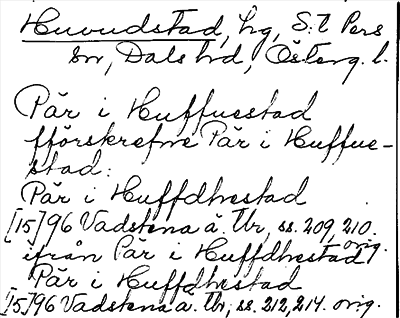 Huvudstad, hg, S:t Pers
sn, Dals hd, Österg. l.
Pär i Huffuestad
fförskrefne Pär i Huffue-
stad:
Pär i Huffdhestad
[15]96 Vadstena ä. Ur, ss. 209, 210.
orig.
ifrån Pär i Huffdhestad
Pär i Huffdhestad
[15]96 Vadstena ä. Ur, ss. 212, 214. orig.